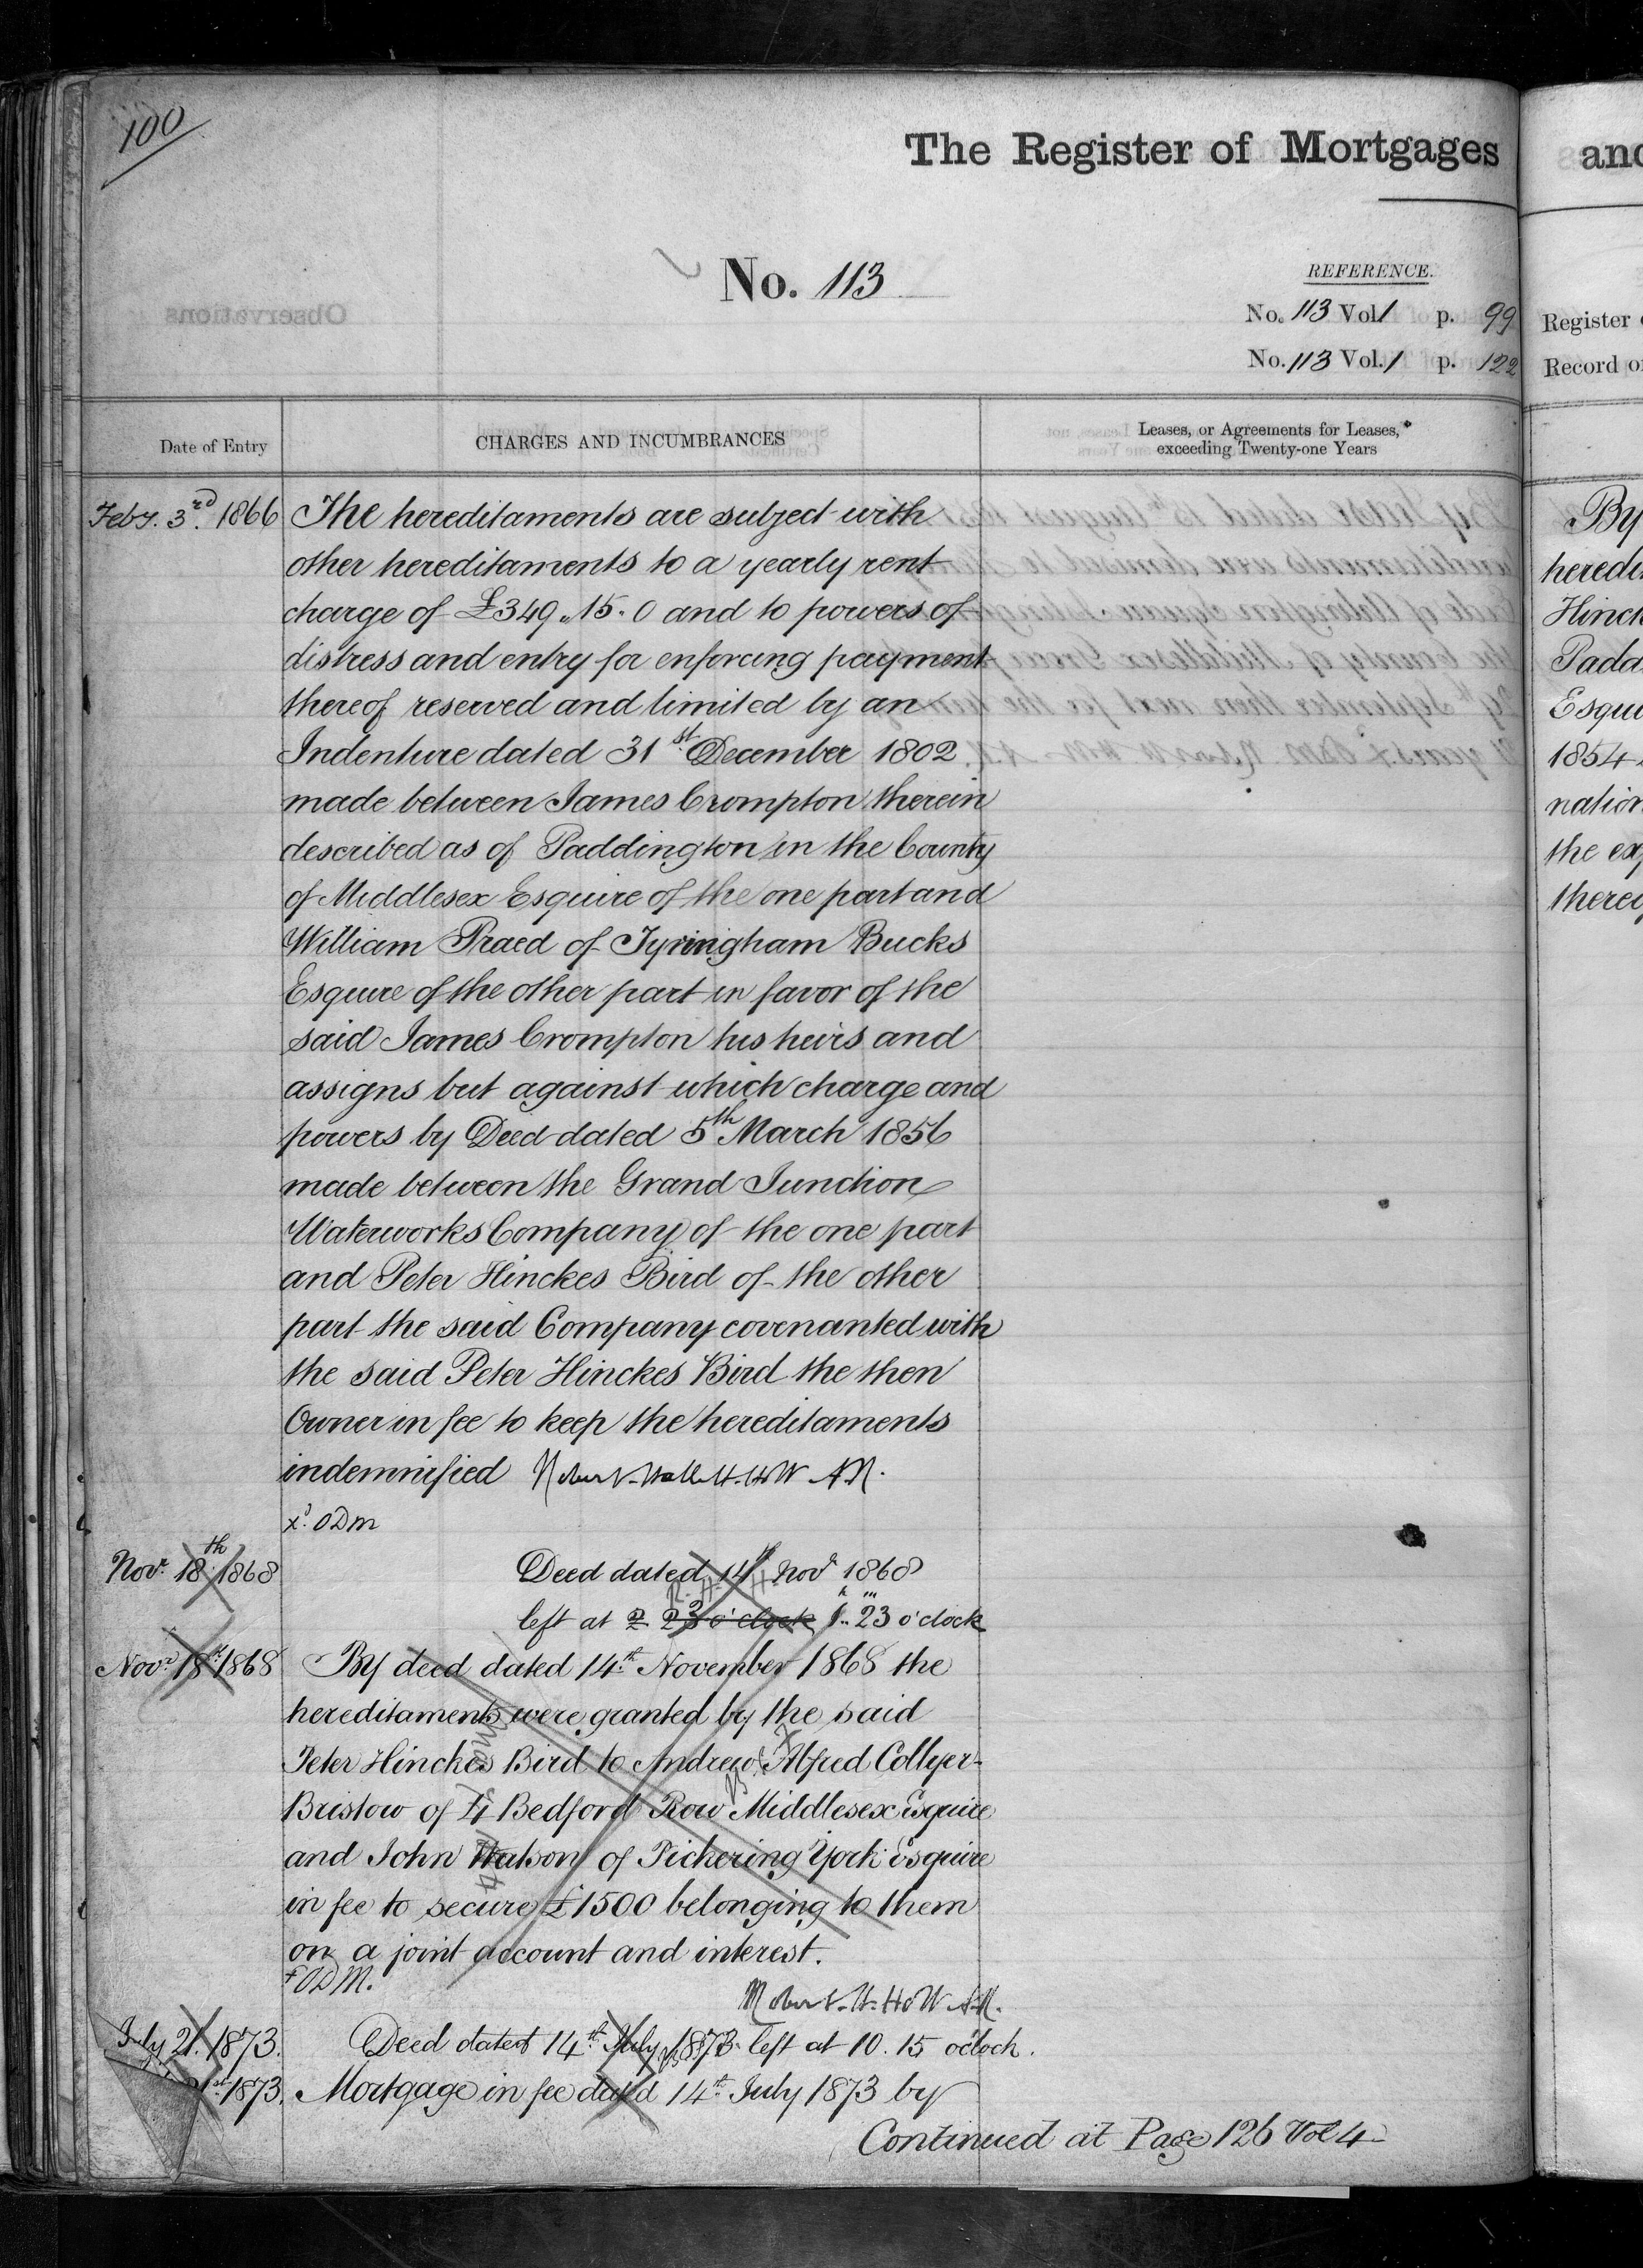 100
The Register of Mortgages
and
No. 113
REFERENCE.
No. 113 Vol 1 p. 99
No. 113 Vol. 1 p. 122
Register
Record
Observations
Date of Entry
CHARGES AND INCUMBRANCES
Leases, or Agreements for Leases,
exceeding Twenty-one Years
Feby. 3rd. 1866 The hereditaments are subject with
other hereditaments to a yearly rent
charge of £349.15.0 and to powers of
distress and entry for enforcing payment
thereof reserved and limited by an
Indenture dated 31st December 1802
made between James Crompton therein
described as of Paddington in the County
of Middlesex Esquire of the one part and
William Praed of Tyringham Bucks
Esquire of the other part in favor of the
said James Crompton his heirs and
assigns but against which charge and
powers by Deed dated 5th March 1856
made between the Grand Junction
Waterworks Company of the one part
and Peter Hinckes Bird of the other
part the said Company covenanted with
the said Peter Hinckes Bird the then
Owner in fee to keep the hereditaments
indemnified
xd. ODM
Novr. 18th 1868 Deed dated 14th Novr 1868
left at 2 23 o'clock 1.. 23 o'clock
Novr. 18th 1868 By deed dated 14th November 1868 the
hereditaments were granted by the said
Peter Hinckes Bird to Andrew Alfred Collyer-
Bristow of 4 Bedford Row Middlesex Esquire
and John Watson of Pickering York Esquire
in fee to secure £1500 belonging to them
on a joint account and interest.
ODM.
July 21. 1873. Deed dated 14th July 1873. left at 10.15 o'clock.
1873. Mortgage in fee dated 14th July 1873 by
Continued at Page 126 Vol 4
By
Hinck
Padd
Esqui
1854
nation
the